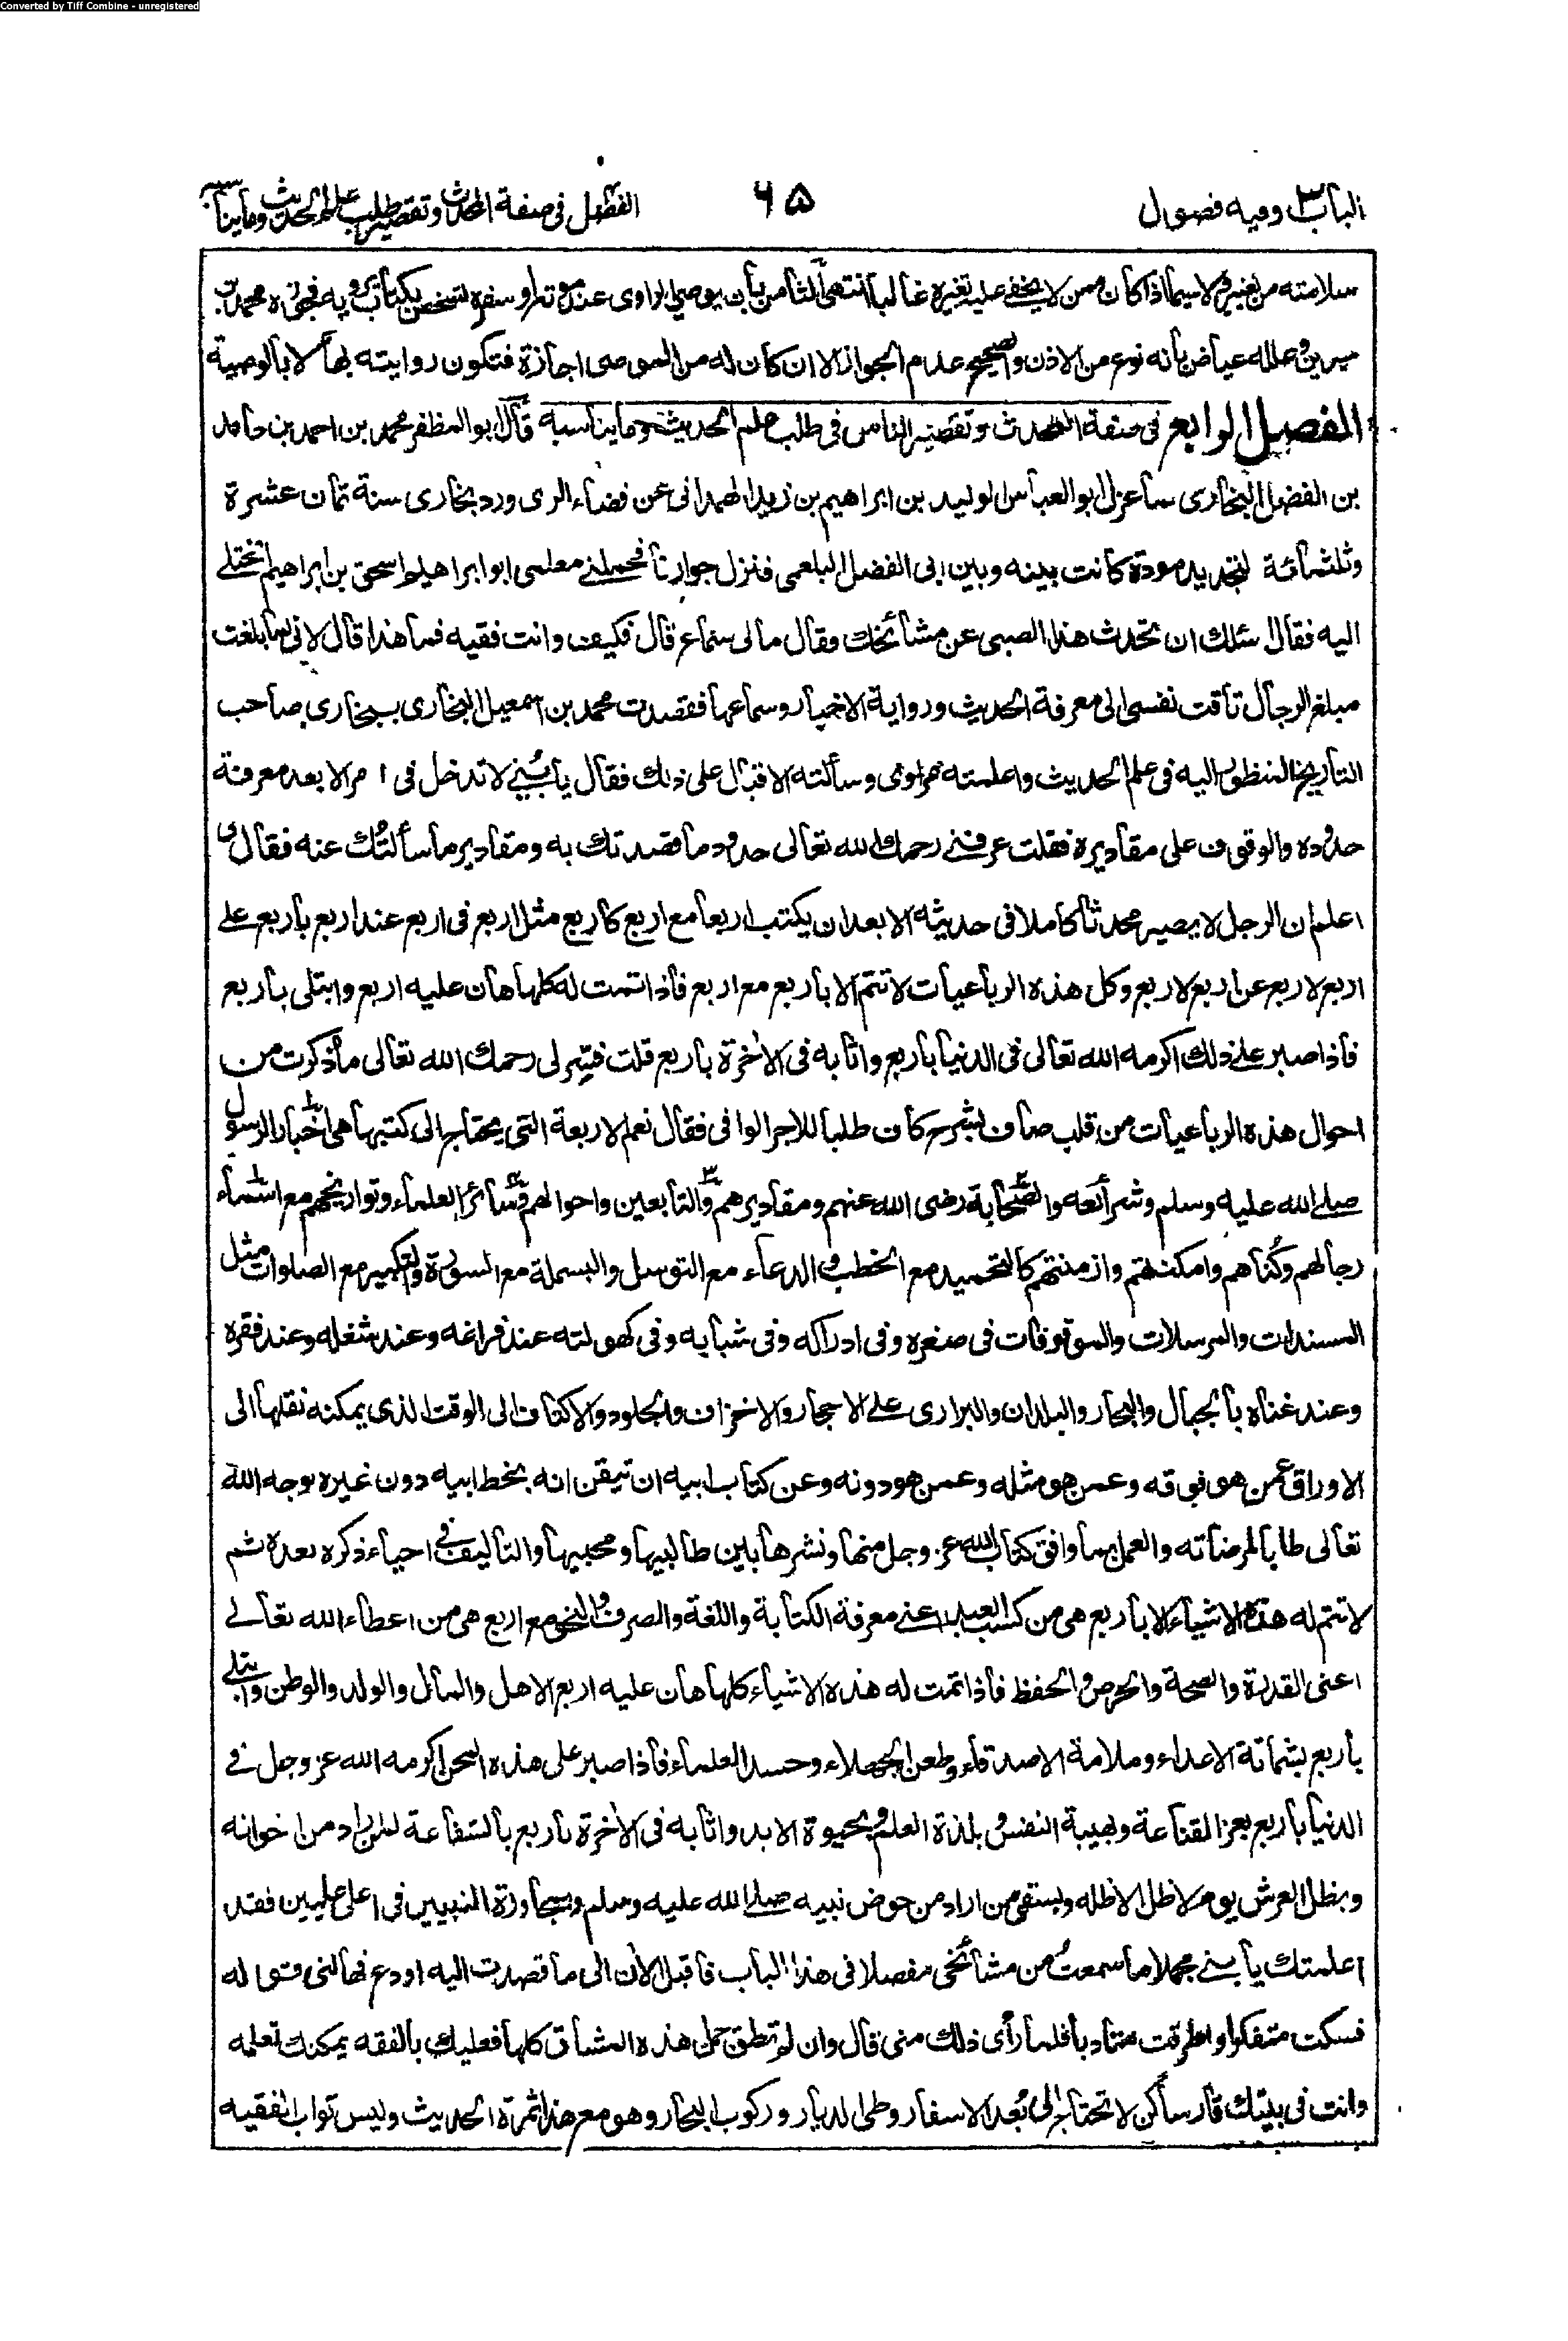 Converted by Tiff Combine - unregistered
الباب ٣ وفيه فصول
٦٥
الفصل٤ فى صفة المحدث وتقصير طلب علم الحديث وما يناسبه
سلامته من تغييره لا سيما اذا كان ممن لا يخفى عليه تغيره غالبا انتهى الثامن بأن يوصى الراوى عند موته او سفره لشخص بكتاب يرويه فجوزه محمد بن
سيرين وعلله عياض بانه نوع من الاذن والصحيح عدم الجواز الا ان كان له من الموصى اجازة فتكون روايته بها لا بالوصية
الفصل الرابع فى صفة المحدث وتقصير الناس فى طلب علم الحديث وما يناسبه قال ابو المظفر محمد بن احمد بن حامد
بن الفضل البخارى لما عزل ابو العباس الوليد بن ابراهيم بن زيد الهمدانى عن قضاء الرى ورد بخارى سنة ثمان عشرة
وثلثمائة لتجديد مودة كانت بينه وبين ابى الفضل البلعمى فنزل جوارنا فحملنى معلمى ابو ابراهيم اسحق بن ابراهيم الختلى
اليه فقال اسئلك ان تحدث هذا الصبى عن مشائخك وقال مالى سماع قال فكيف وانت فقيه فما هذا قال لانى لما بلغت
مبلغ الرجال تاقت نفسى الى معرفة الحديث ورواية الاخبار وسماعها فقصدت محمد بن اسمعيل البخارى ببخارى صاحب
التاريخ المنظور اليه فى علم الحديث واعلمته مرادى وسألته الاقبال على ذلك فقال يا بُنى لا تدخل فى امر الا بعد معرفة
حدوده والوقوف على مقاديره فقلت عرفنى رحمك الله تعالى حدود ما قصدتك به ومقادير ما سألتُك عنه فقال لى
اعلم ان الرجل لا يصير محدثا كاملا فى حديثه الا بعد ان يكتب اربعا مع اربع كاربع مثل اربع فى اربع عند اربع باربع على
اربع لاربع عن اربع لاربع وكل هذه الرباعيات لا تتم الا باربع مع اربع فاذا تمت له كلها هان عليه اربع وابتلى باربع
فاذا صبر على ذلك اكرمه الله تعالى فى الدنيا باربع واثابه فى الأخرة باربع قلت فسّر لى رحمك الله تعالى ما ذكرت من
احوال هذه الرباعيات من قلب صاف بشرح كاف طلبا للاجر الوافى فقال نعم الاربعة التى يحتاج الى كتبها هى اخبار الرسول
صلى الله عليه وسلم وشرائعه والصحابة رضى الله عنهم ومقاديرهم والتابعين واحوالهم وسائر العلماء وتواريخهم مع اسماء
رجالهم وكُناهم وامكنتهم وازمنتهم كالتحميد مع الخطب والدعاء مع التوسل والبسملة مع السورة والتكبير مع الصلوات مثل
المسندات والمرسلات والموقوفات فى صغره وفى ادراكه وفى شبابه وفى كهولته عند فراغه وعند شغله وعند فقره
وعند غناه بالجبال والبحار والبلدان والبرارى على الاحجار والاخزاف والجلود والاكتاف الى الوقت الذى يمكنه نقلها الى
الاوراق عمن هو فوقه وعمن هو مثله وعمن هو دونه وعن كتاب ابيه ان تيقن انه بخط ابيه دون غيره لوجه الله
تعالى طالبا لمرضاته والعمل بما وافق كتاب الله عز وجل منها ونشرها بين طالبيها ومحبيها والتاليف فى احياء ذكره بعده ثم
لا تتم له هذه الاشياء الا باربع هى من كسب العبد اعنى معرفة الكتابة واللغة والصرف والنحو مع اربع هى من اعطاء الله تعالى
اعنى القدرة والصحة والحرص والحفظ فاذا تمت له هذه الاشياء كلها هان عليه اربع الاهل والمال والولد والوطن وابتلى
باربع بشماتة الاعداء وملامة الاصدقاء وطعن الجهلاء وحسد العلماء فاذا صبر على هذه المحن اكرمه الله عز وجل فى
الدنيا باربع بعز القناعة وبهيبة النفس وبلذة العلم وبحيوة الابد واثابه فى الأخرة باربع بالشفاعة لمن اراد من اخوانه
وبظل العرش يوم لا ظل الا ظله ويسقى من اراد من حوض نبيه صلى الله عليه وسلم وبمجاورة النبيين فى اعلى عليين فقد
اعلمتك يا بنى مجملا ما سمعتُ من مشائخى مفصلا فى هذا الباب فاقبل الأن الى ما قصدت اليه او دع فهالنى قوله
فسكت متفكرا واطرقت متادبا فلما رأى ذلك منى قال وان لم تطق حمل هذه المشاق كلها فعليك بالفقه يمكنك تعلمه
وانت فى بيتك قار ساكن لا تحتاج الى بُعد الاسفار وطى الديار وركوب البحار وهو مع هذا ثمرة الحديث وليس ثواب الفقيه